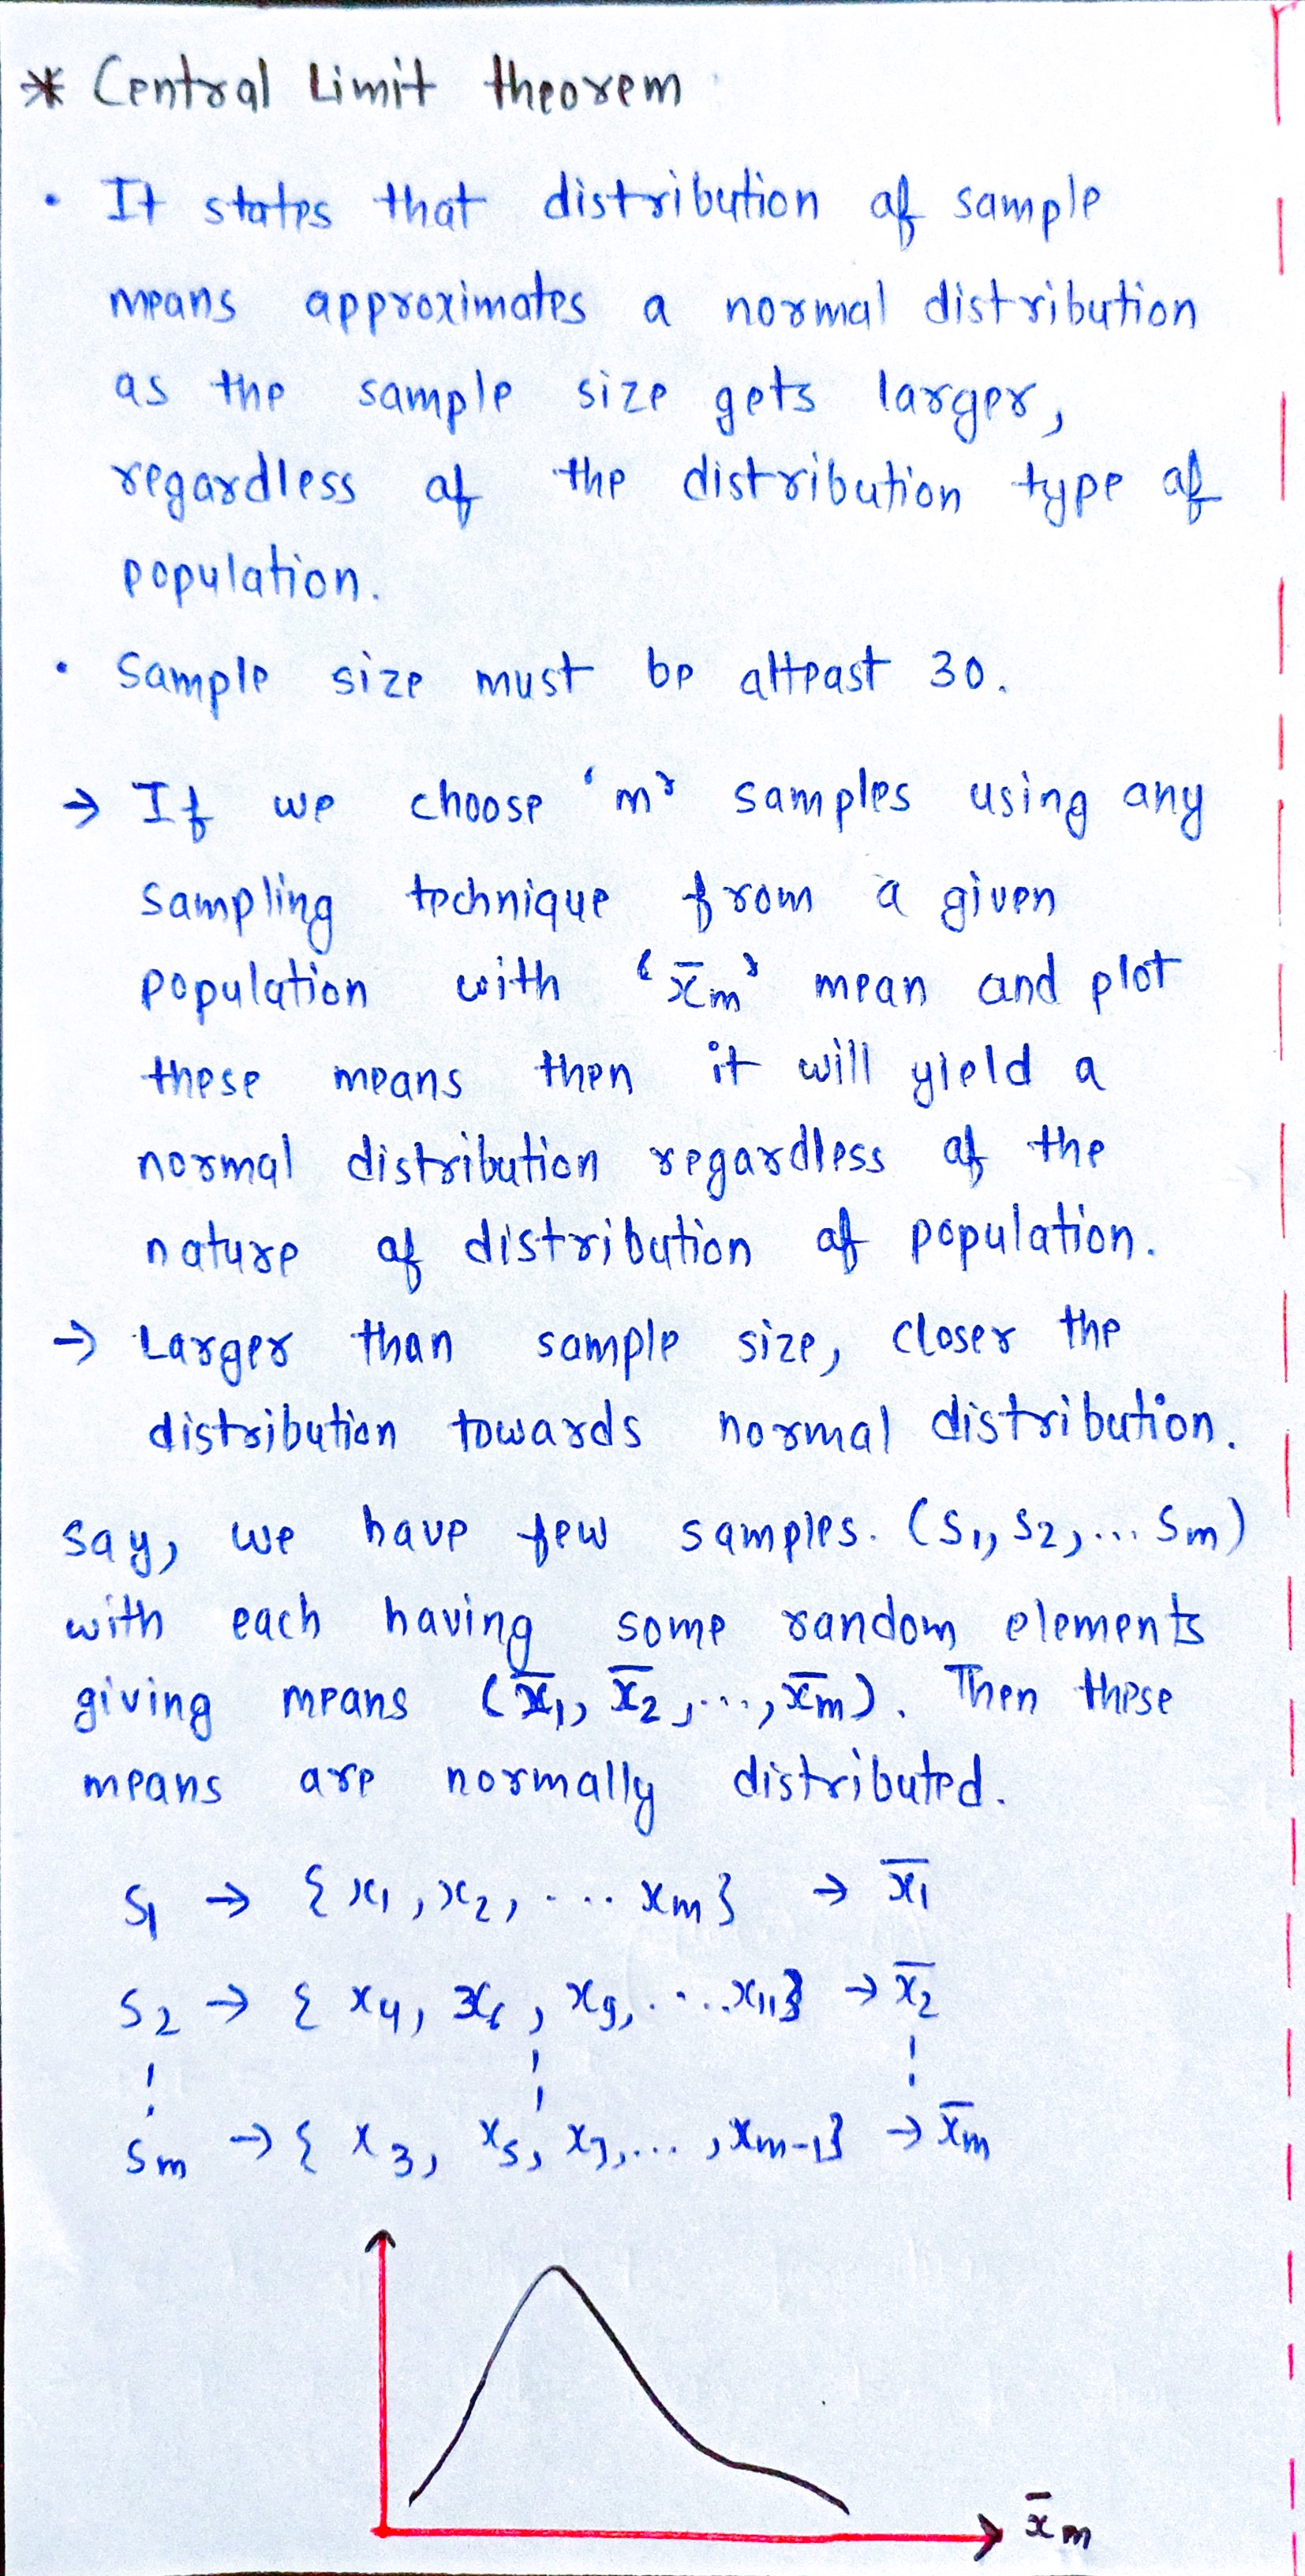 * Central Limit theorem
• It states that distribution of sample
means approximates a normal distribution
as the sample size gets larger,
regardless of the distribution type of
population.
• Sample size must be atleast 30.
→ If we choose 'm' samples using any
sampling technique from a given
population with 'x̄m' mean and plot
these means then it will yield a
normal distribution regardless of the
nature of distribution of population.
→ Larger than sample size, closer the
distribution towards normal distribution.
say, we have few samples. (S1, S2, ... Sm)
with each having some random elements
giving means (x̄1, x̄2, ..., x̄m). Then these
means are normally distributed.
S1 → {x1, x2, .... xm} → x̄1
S2 → {x4, x6, x9, .....x11} → x̄2
Sm → {x3, x5, x7, ... , xm-1} → x̄m
x̄m